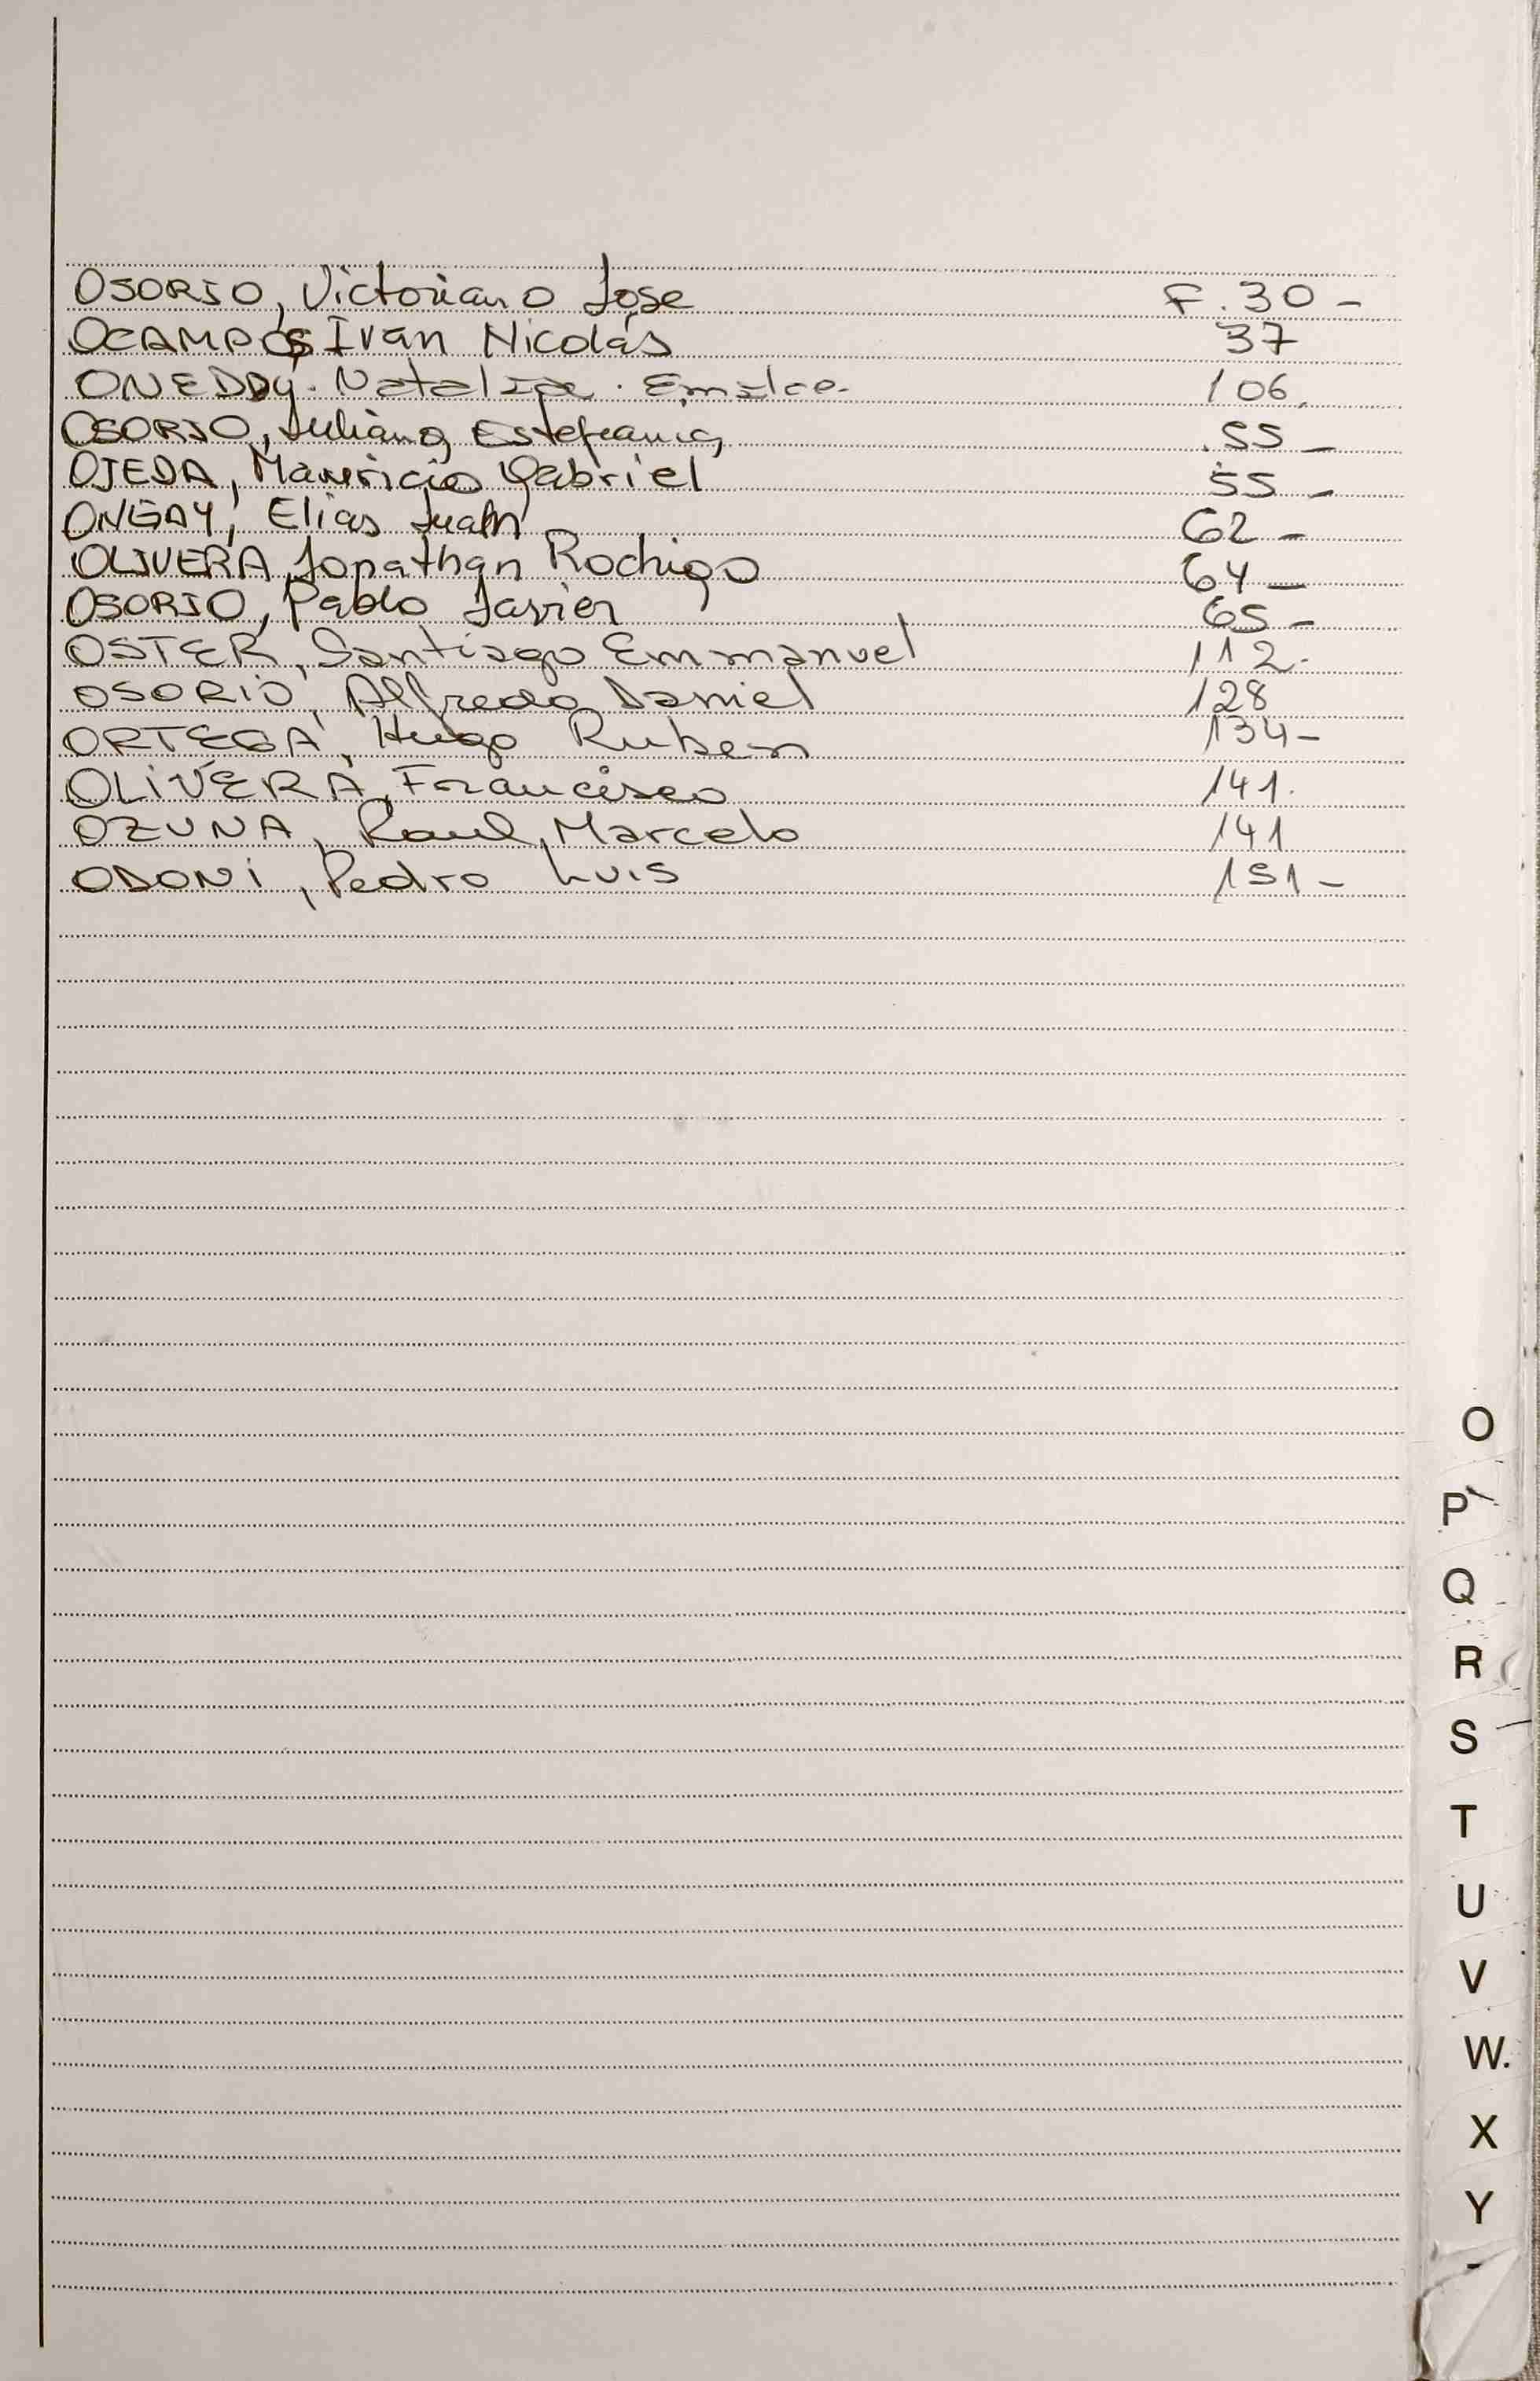 OSORIO, Victoriano Jose F. 30 -
OCAMPOS Ivan Nicolás 37
ONEDDY. Natalia . Emilce. 106.
OSORIO, Juliana Estefania 55 -
OJEDA, Mauricio Gabriel 55 -
ONGAY, Elias Juan 62 -
OLIVERA, Jonathan Rodrigo 64 -
OSORIO, Pablo Javier 65 -
OSTER, Santiago Emmanuel 112.
OSORIO, Alfredo Daniel 128
ORTEGA, Hugo Ruben 134 -
OLIVERA, Francisco 141.
OZUNA, Raul Marcelo 141
ODONI, Pedro Luis 151 -
O
P
Q
R
S
T
U
V
W.
X
Y